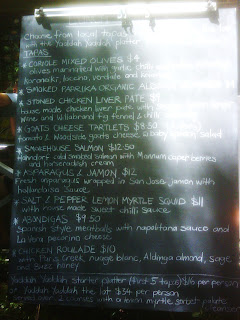 Choose from local tapas
with the Yuddah Yuddah platter
TAPAS
* CORIOLE MIXED OLIVES $4
olives marinated with garlic, chilli
* SMOKED PAPRIKA ORGANIC
* STONED CHICKEN LIVER PATE
house made chicken liver pate with
wine and Willabrand fig fennel & chilli
* GOATS CHEESE TARTLETS $8.50
tomato & Woodside goats cheese baby salad
* SMOKEHOUSE SALMON $12.50
Hahndorf cold smoked salmon with Mannum caper berries
and horseradish cream
* ASPARAGUS & JAMON $12
Fresh asparagus wrapped in San Jose jamon with
hollandaise sauce
* SALT & PEPPER LEMON MYRTLE SQUID $11
with house made sweet chilli sauce
* ABONDIGAS $9.50
Spanish style meatballs with napolitana sauce and
La Vera pecorino cheese
* CHICKEN ROULADE $10
with Paris Creek nuage blanc, Aldinga almond, sage
and honey
Yuddah Yuddah Starter platter (first 5 tapas) $16 per person
Yuddah Yuddah the lot $34 per person
with a lemon myrtle sorbet palate